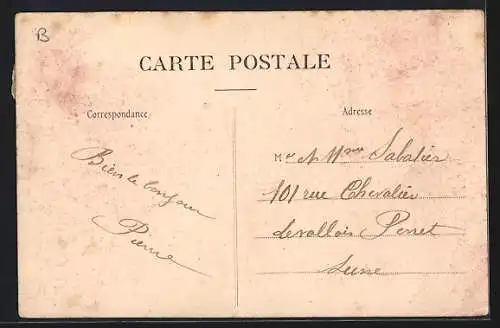 B
CARTE POSTALE
Correspondance
Adresse
Bien le bonjour
Pierre
Mr et Mme Sabatier
101 rue Chevalier
Levallois Perret
Seine